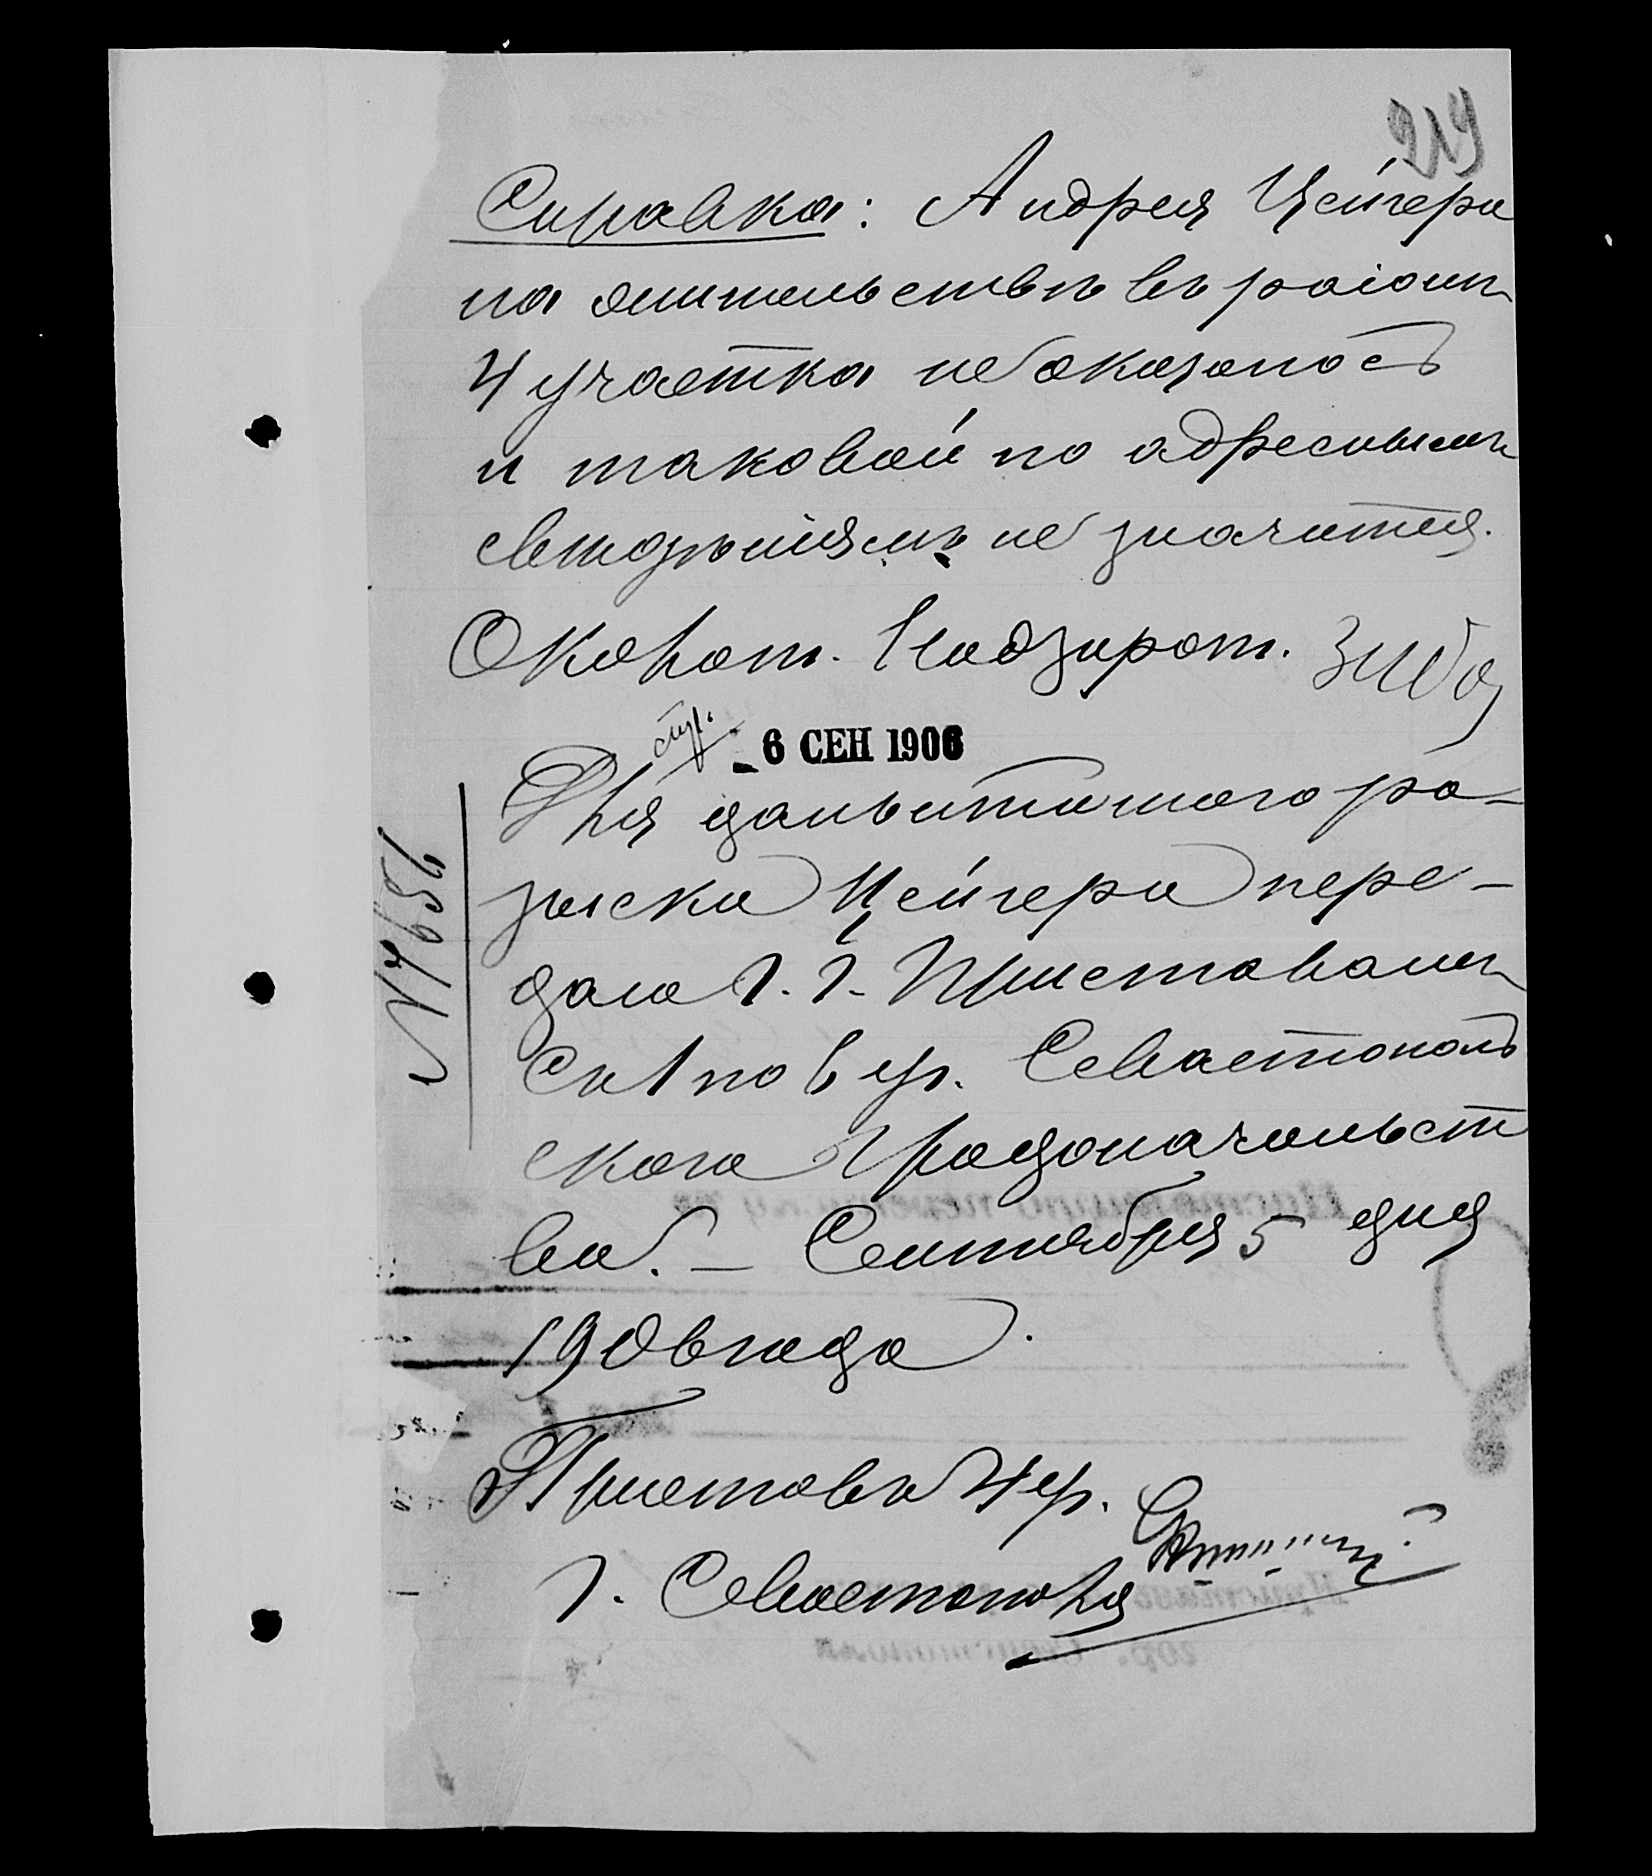 219
Справка: Андрея Цейгера
на жительствѣ въ раіонѣ
4 участка не оказалось
и таковой по адреснымъ
свѣдѣніямъ не значится.
Околот. Надзират.
6 СЕН 1906
Для дальнѣйшаго ро-
зыска Цейгера пере-
даю Г.г. Приставамъ
съ 1 по 6 уч. Севастополь
скаго Градоначальст
ва. – Сентября 5 дня
1906 года.
№ 7656
Приставъ 4 уч.
г. Севастополя